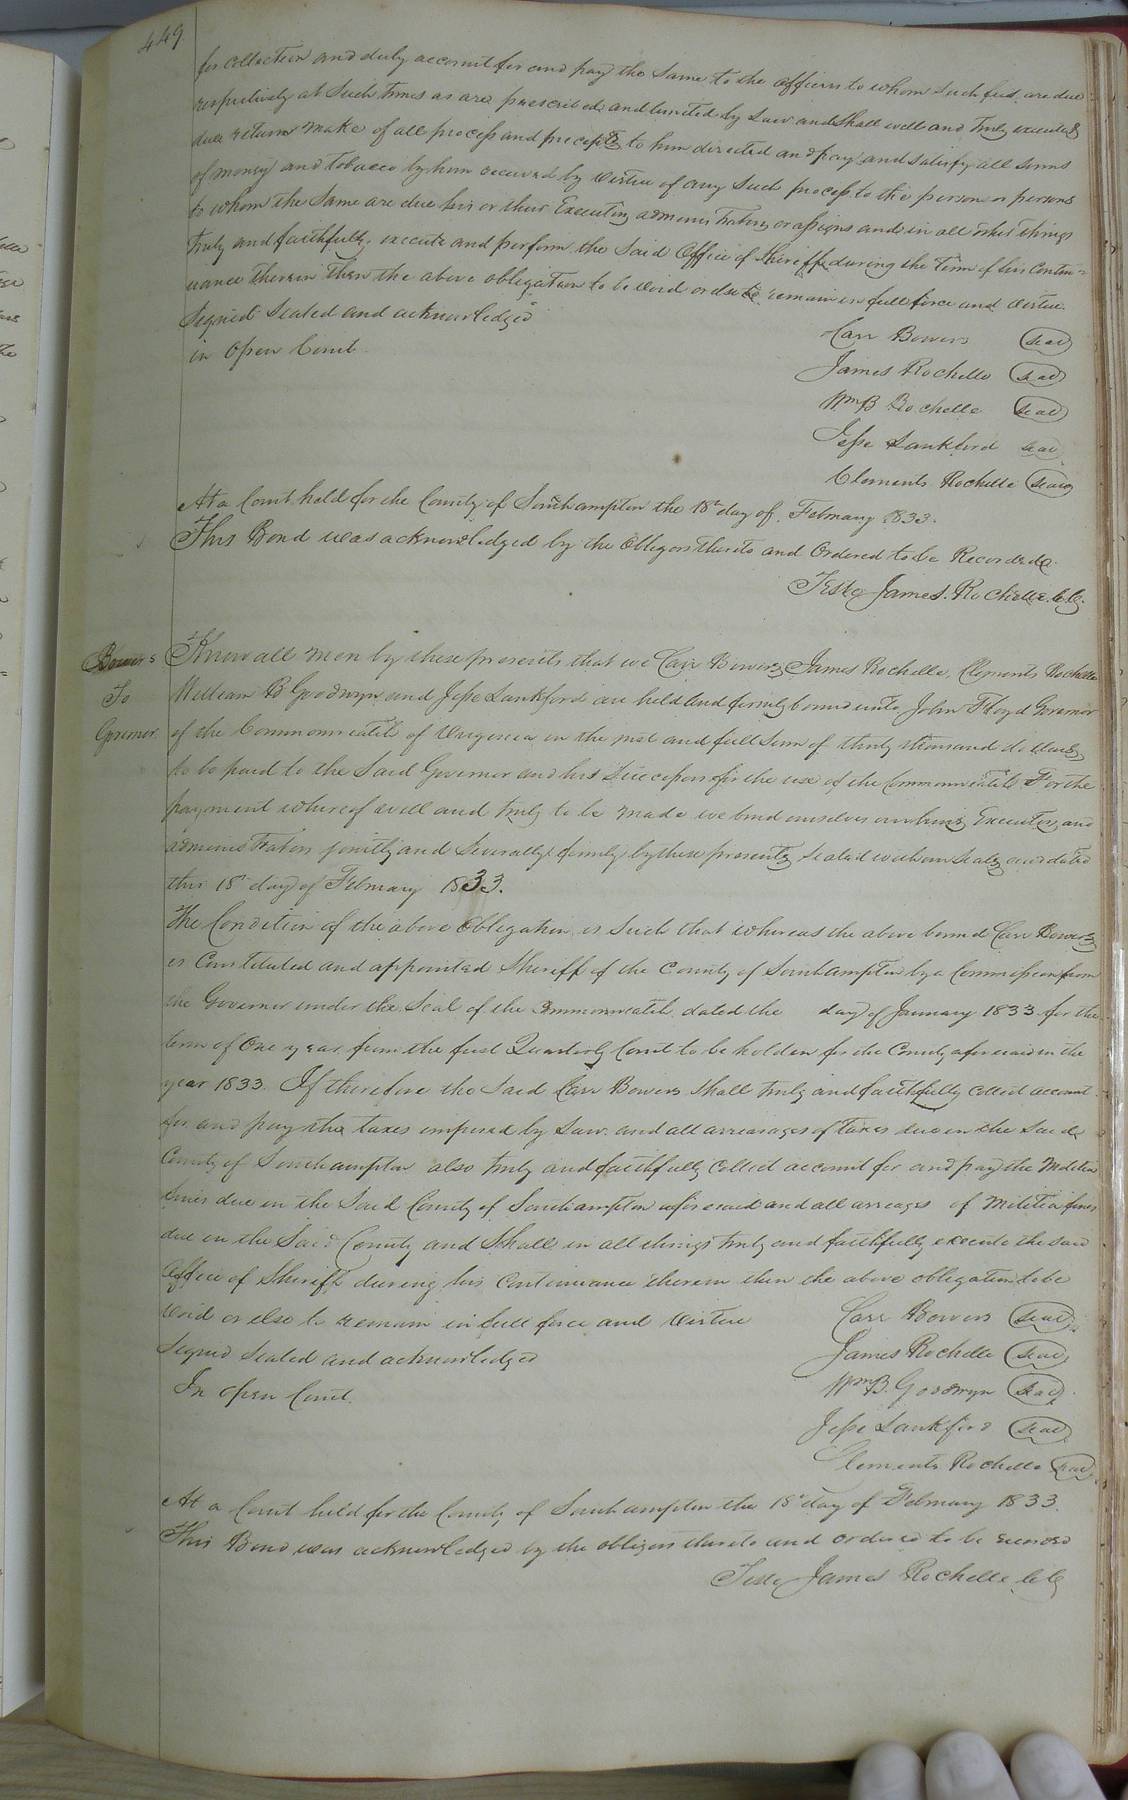 449
for Collection and duly account for and pay the Same to the officers to whom Such fees are due
respectively at Such times as are prescribed and limited by Law and Shall well and truly execute &
due return make of all process and precepts to him directed and pay and Satisfy all Sums
of money and Tobacco by him received by virtue of any Such process to the person or persons
to whom the Same are due his or their Executors administrators or assigns and in all other things
truly and faithfully execute and perform the Said Office of Sheriff during the Term of his Contin=
uance therein then the above obligation to be void or else to remain in full force and virtue.
Signed Sealed and acknowledged
in Open Court
Carr Bowers Seal
James Rochelle Seal
Wm B Rochelle Seal
Jesse Lankford Seal
Clements Rochelle Seal
At a Court held for the County of Southampton the 18th day of February 1833.
This Bond was acknowledged by the Obligors thereto and Ordered to be Recorded.
Teste James Rochelle C.C.
Bowers
To
Governor
Know all men by these presents that we Carr Bowers, James Rochelle, Clements Rochelle
William B Goodwyn and Jesse Lankford are held and firmly bound unto John Floyd Governor
of the Commonwealth of Virginia in the just and full Sum of thirty thousand dollars
to be paid to the Said Governor and his Successors for the use of the Commonwealth For the
payment whereof well and truly to be made we bind ourselves our heirs Executors and
administrators jointly and Severally firmly by these presents Sealed with our Seals and dated
this 18th day of February 1833.
The Condition of the above Obligation is Such that whereas the above bound Carr Bowers
is Constituted and appointed Sheriff of the County of Southampton by a Commission from
the Governor under the Seal of the Commonwealth dated the day of January 1833 for the
term of One year from the first Quarterly Court to be holden for the County aforesaid in the
year 1833. If therefore the Said Carr Bowers Shall truly and faithfully Collect account
for and pay the taxes imposed by Law and all arrearages of Taxes due in the Said
County of Southampton also truly and faithfully Collect account for and pay the Militia
fines due in the Said County of Southampton aforesaid and all arreages of Militia fines
due in the Said County and Shall in all things truly and faithfully execute the said
Office of Sheriff during his Continuance therein then the above obligation to be
void or else to remain in full force and virtue
Signed Sealed and acknowledged
In open Court
Carr Bowers Seal
James Rochelle Seal
Wm B. Goodwyn Seal
Jesse Lankford Seal
Clements Rochelle Seal
At a Court held for the County of Southampton the 18th day of February 1833.
This Bond was acknowledged by the obligors thereto and ordered to be record
Teste James Rochelle C.C.